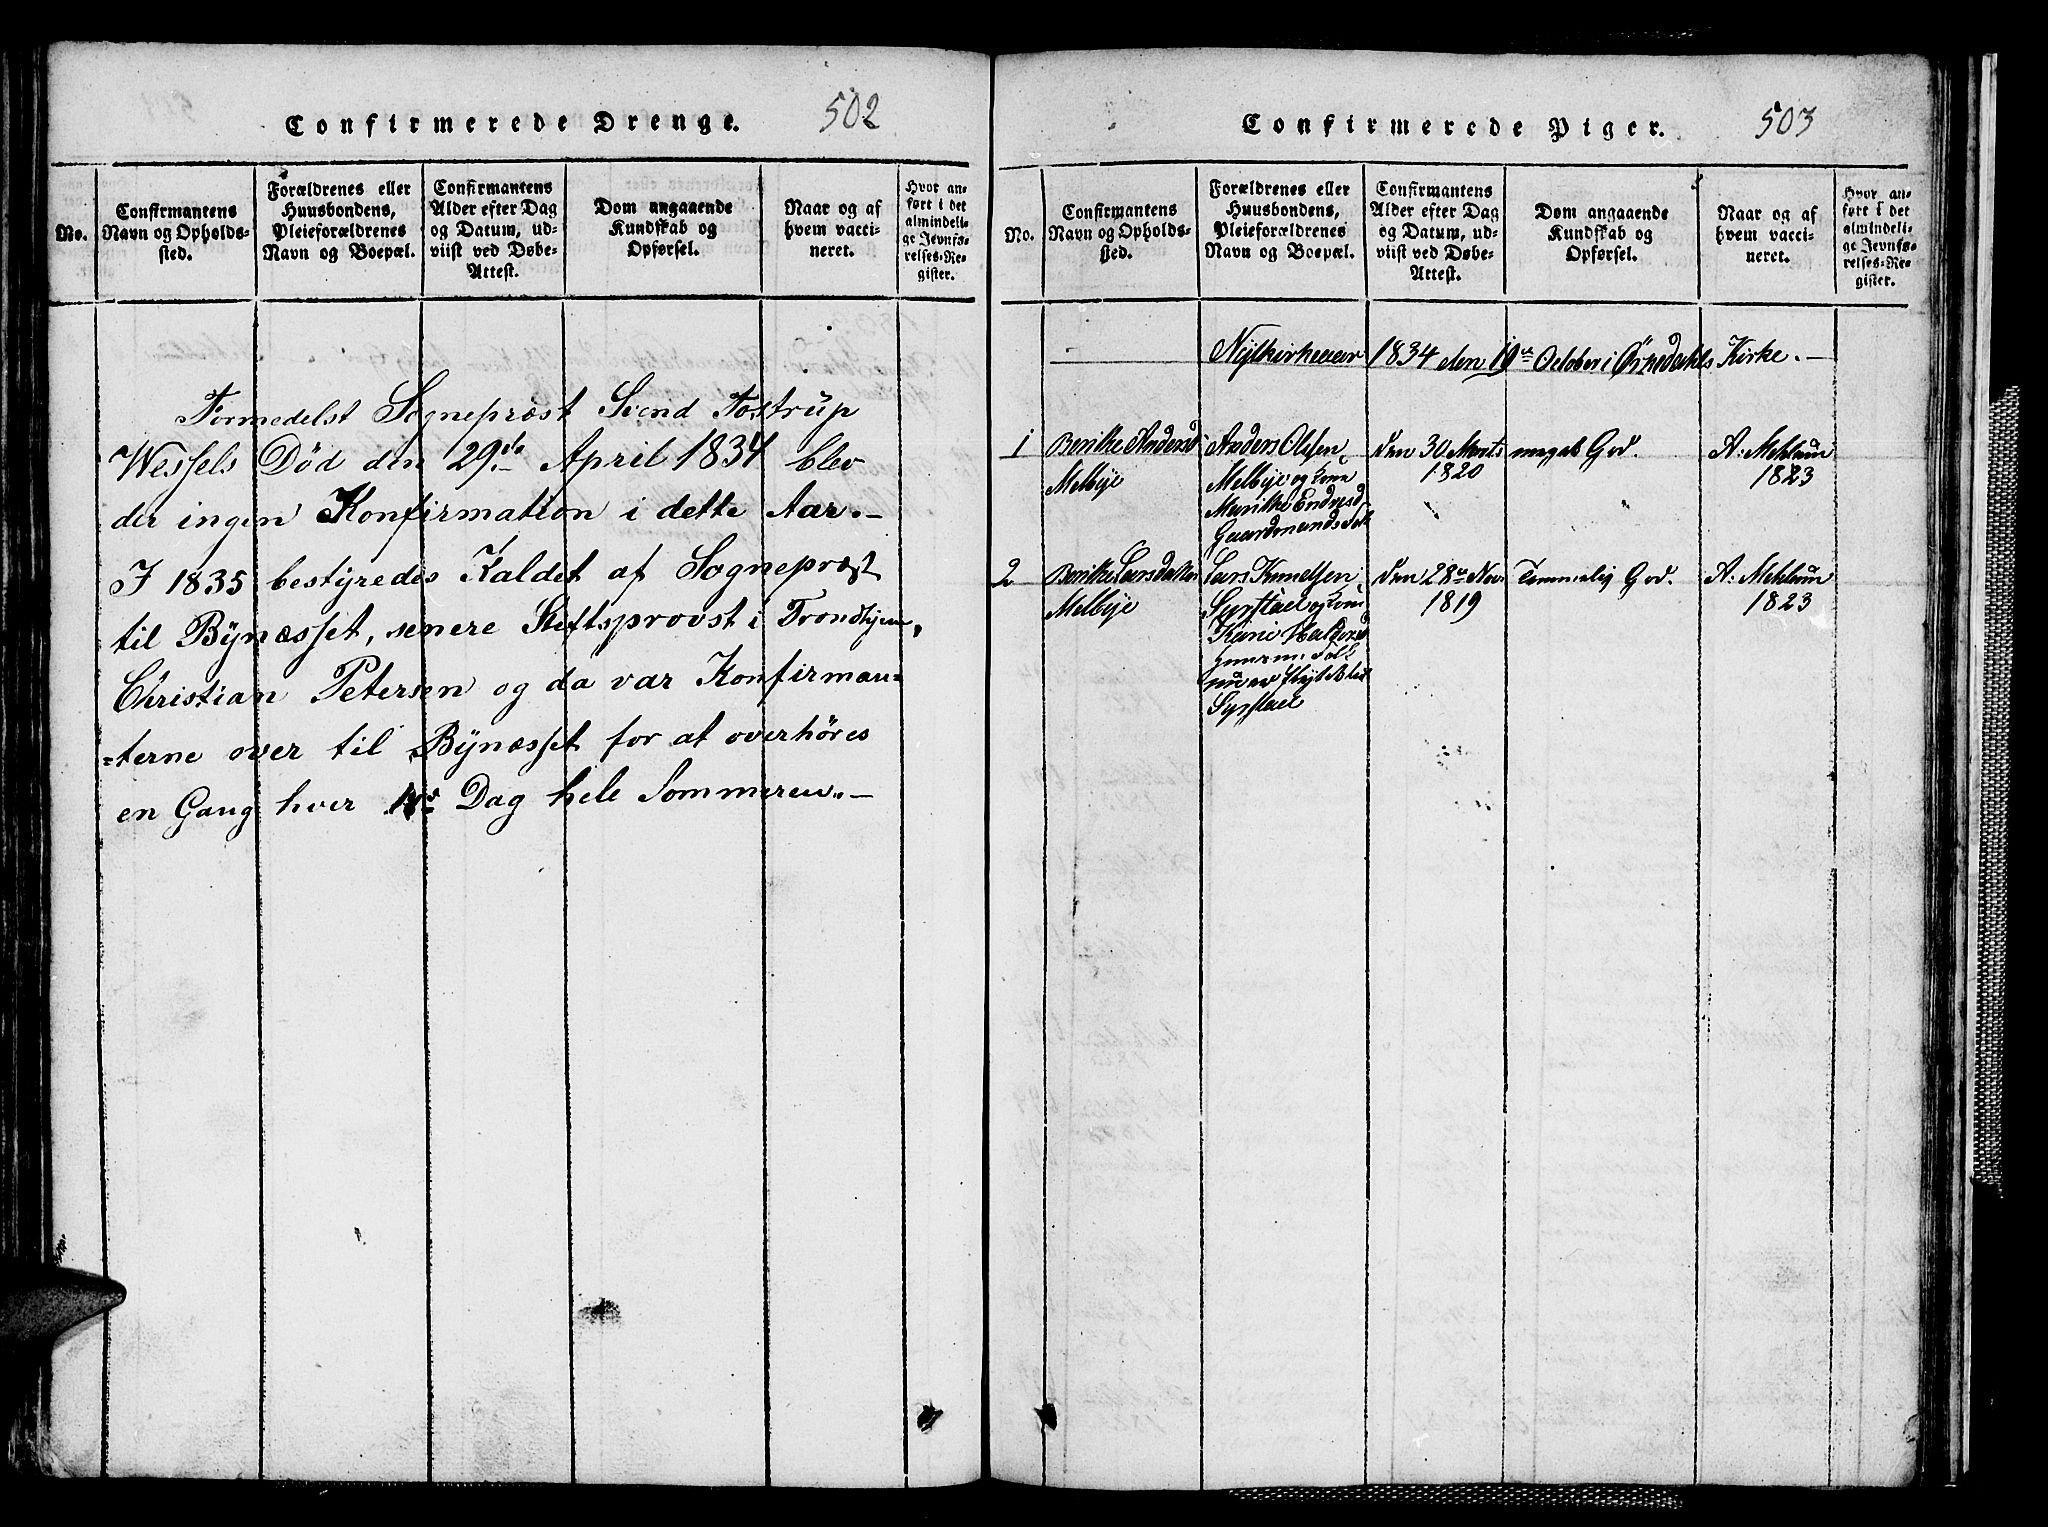 Confirmerede Drenge.
502
No.
Confirmantens
Navn og Opholds-
sted.
Forældrenes eller
Huusbondens,
Pleieforældrenes
Navn og Boepæl.
Confirmantens
Alder efter Dag
og Datum, ud-
viist ved Døbe-
Attest.
Dom angaaende
Kundskab og
Opførsel.
Naar og af
hvem vacci-
neret.
Hvor an-
ført i det
almindeli-
ge Jevnfø-
relses-Re-
gister.
Formedelst Sogneprœst Svend Tostrup
Wessels Død den 29de April 1834 blev
der ingen Konfirmation i dette Aar.-
I 1835 bestyredes Kaldet af Sogneprœst
til Bynœsset, senere Stiftsprovst i Trondhjem,
Christian Petersen og da var Konfirman-
-terne over til Bynœsset for at overhøres
en Gang hver Dag hele Sommeren.-
Confirmerede Piger.
503
No.
Confirmantens
Navn og Opholds-
sted.
Forældrenes eller
Huusbondens,
Pleieforældrenes
Navn og Boepæl.
Confirmantens
Alder efter Dag
og Datum, ud-
viist ved Døbe-
Attest.
Dom angaaende
Kundskab og
Opførsel.
Naar og af
hvem vacci-
neret.
Hvor an-
ført i det
almindeli-
ge Jevnfø-
relses-Re-
gister.
1834 den October i Ørkedalens Kirke.-
1 Berithe Andersd Anders Olsen, den 30 Marts meget God. A: Mehlum
Melbye Melbye og Kone 1820 1823
Marithe Endresd
Gaardmands Folk
2 Berithe Larsdatter Lars Knudsen, den 28de Nov Temmelig God. A: Mehlum
Melbye og Kone 1819 1823
Folk